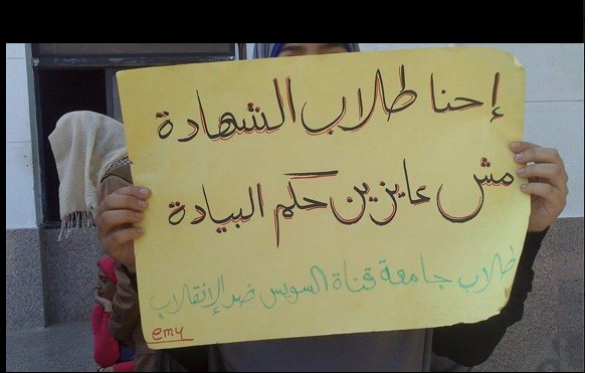 إحنا طلاب الشهادة
مش عايزين حكم البيادة
طلاب جامعة قناة السويس ضد الإنقلاب
emy